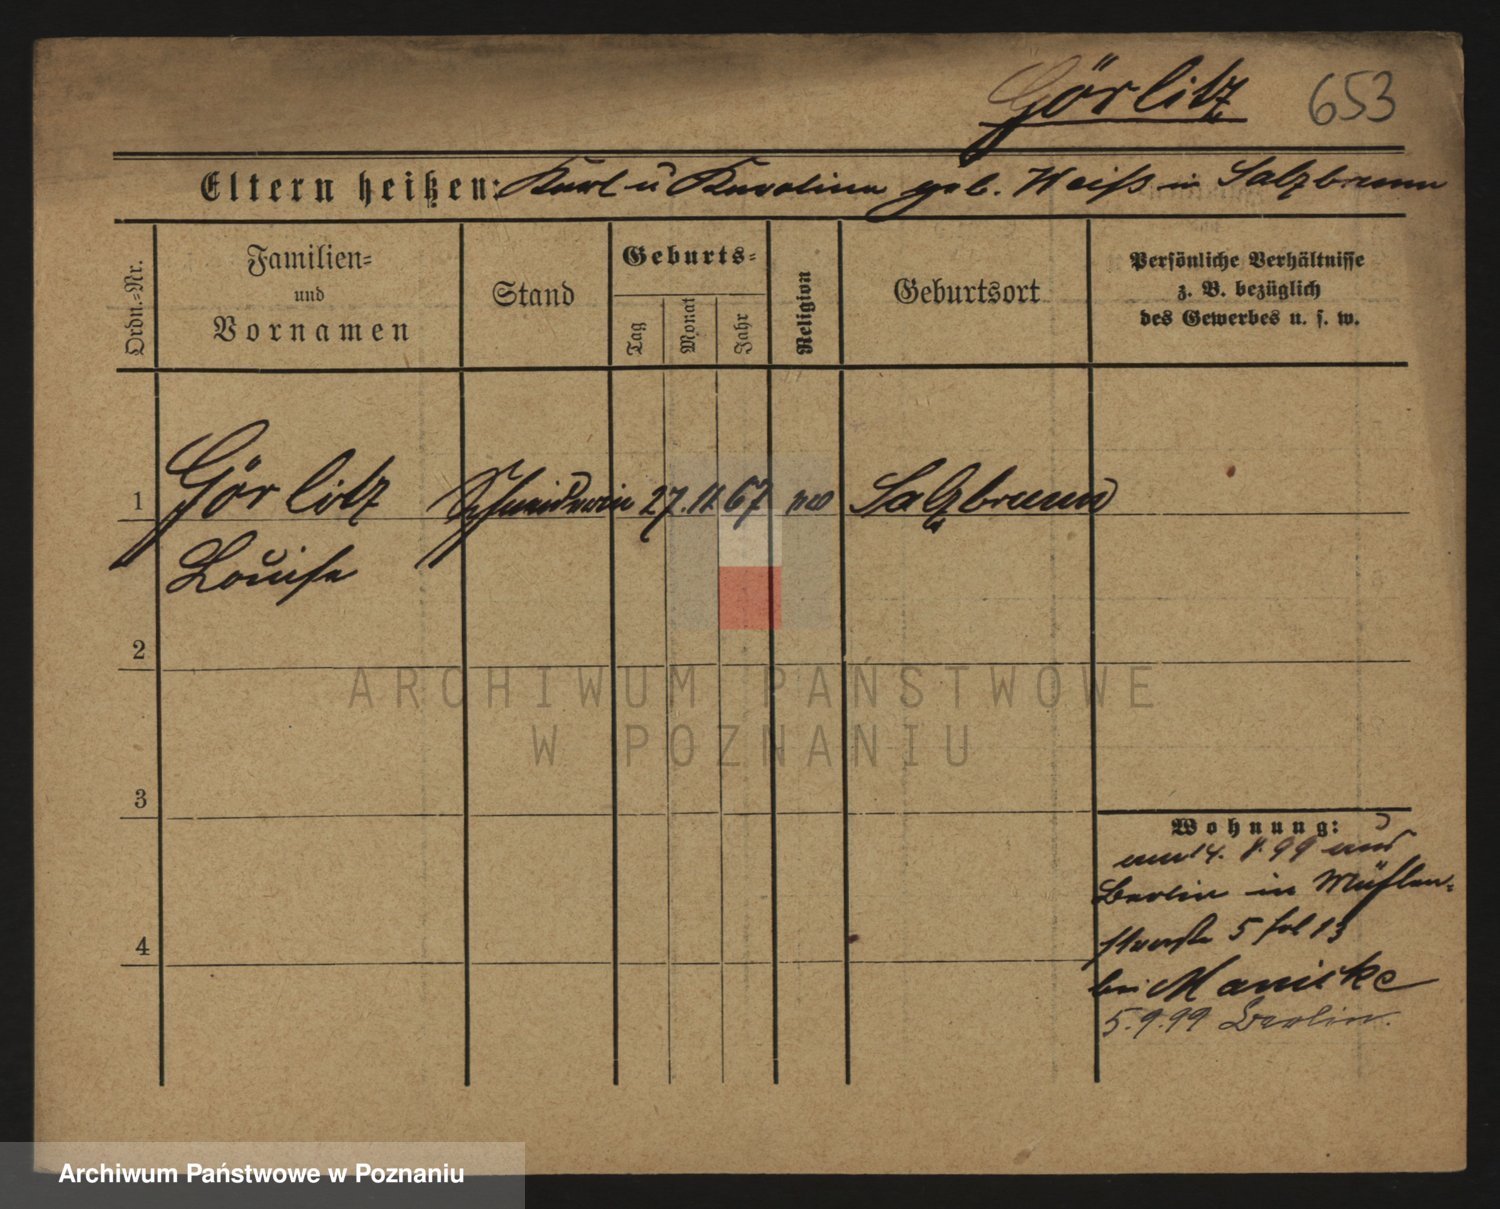 Görlitz 653
Eltern heißen: Karl u Karolina geb. Weiß in Salzbrunn
Ordn.-Nr.
Familien-
und
Vornamen
Stand
Geburts-
Tag
Monat
Jahr
Religion
Geburtsort
Persönliche Verhältnisse
z. B. bezüglich
des Gewerbes u. s. w.
1 Görlitz Schneiderin 27. 11 67 Salzbrunn
Louise
2
3
4
Wohnung:
14. 8. 99
Berlin in Mühlen-
straße 5 13
bei Manicke
5.9.99 Berlin.
ARCHIWUM PAŃSTWOWE
W POZNANIU
Archiwum Państwowe w Poznaniu